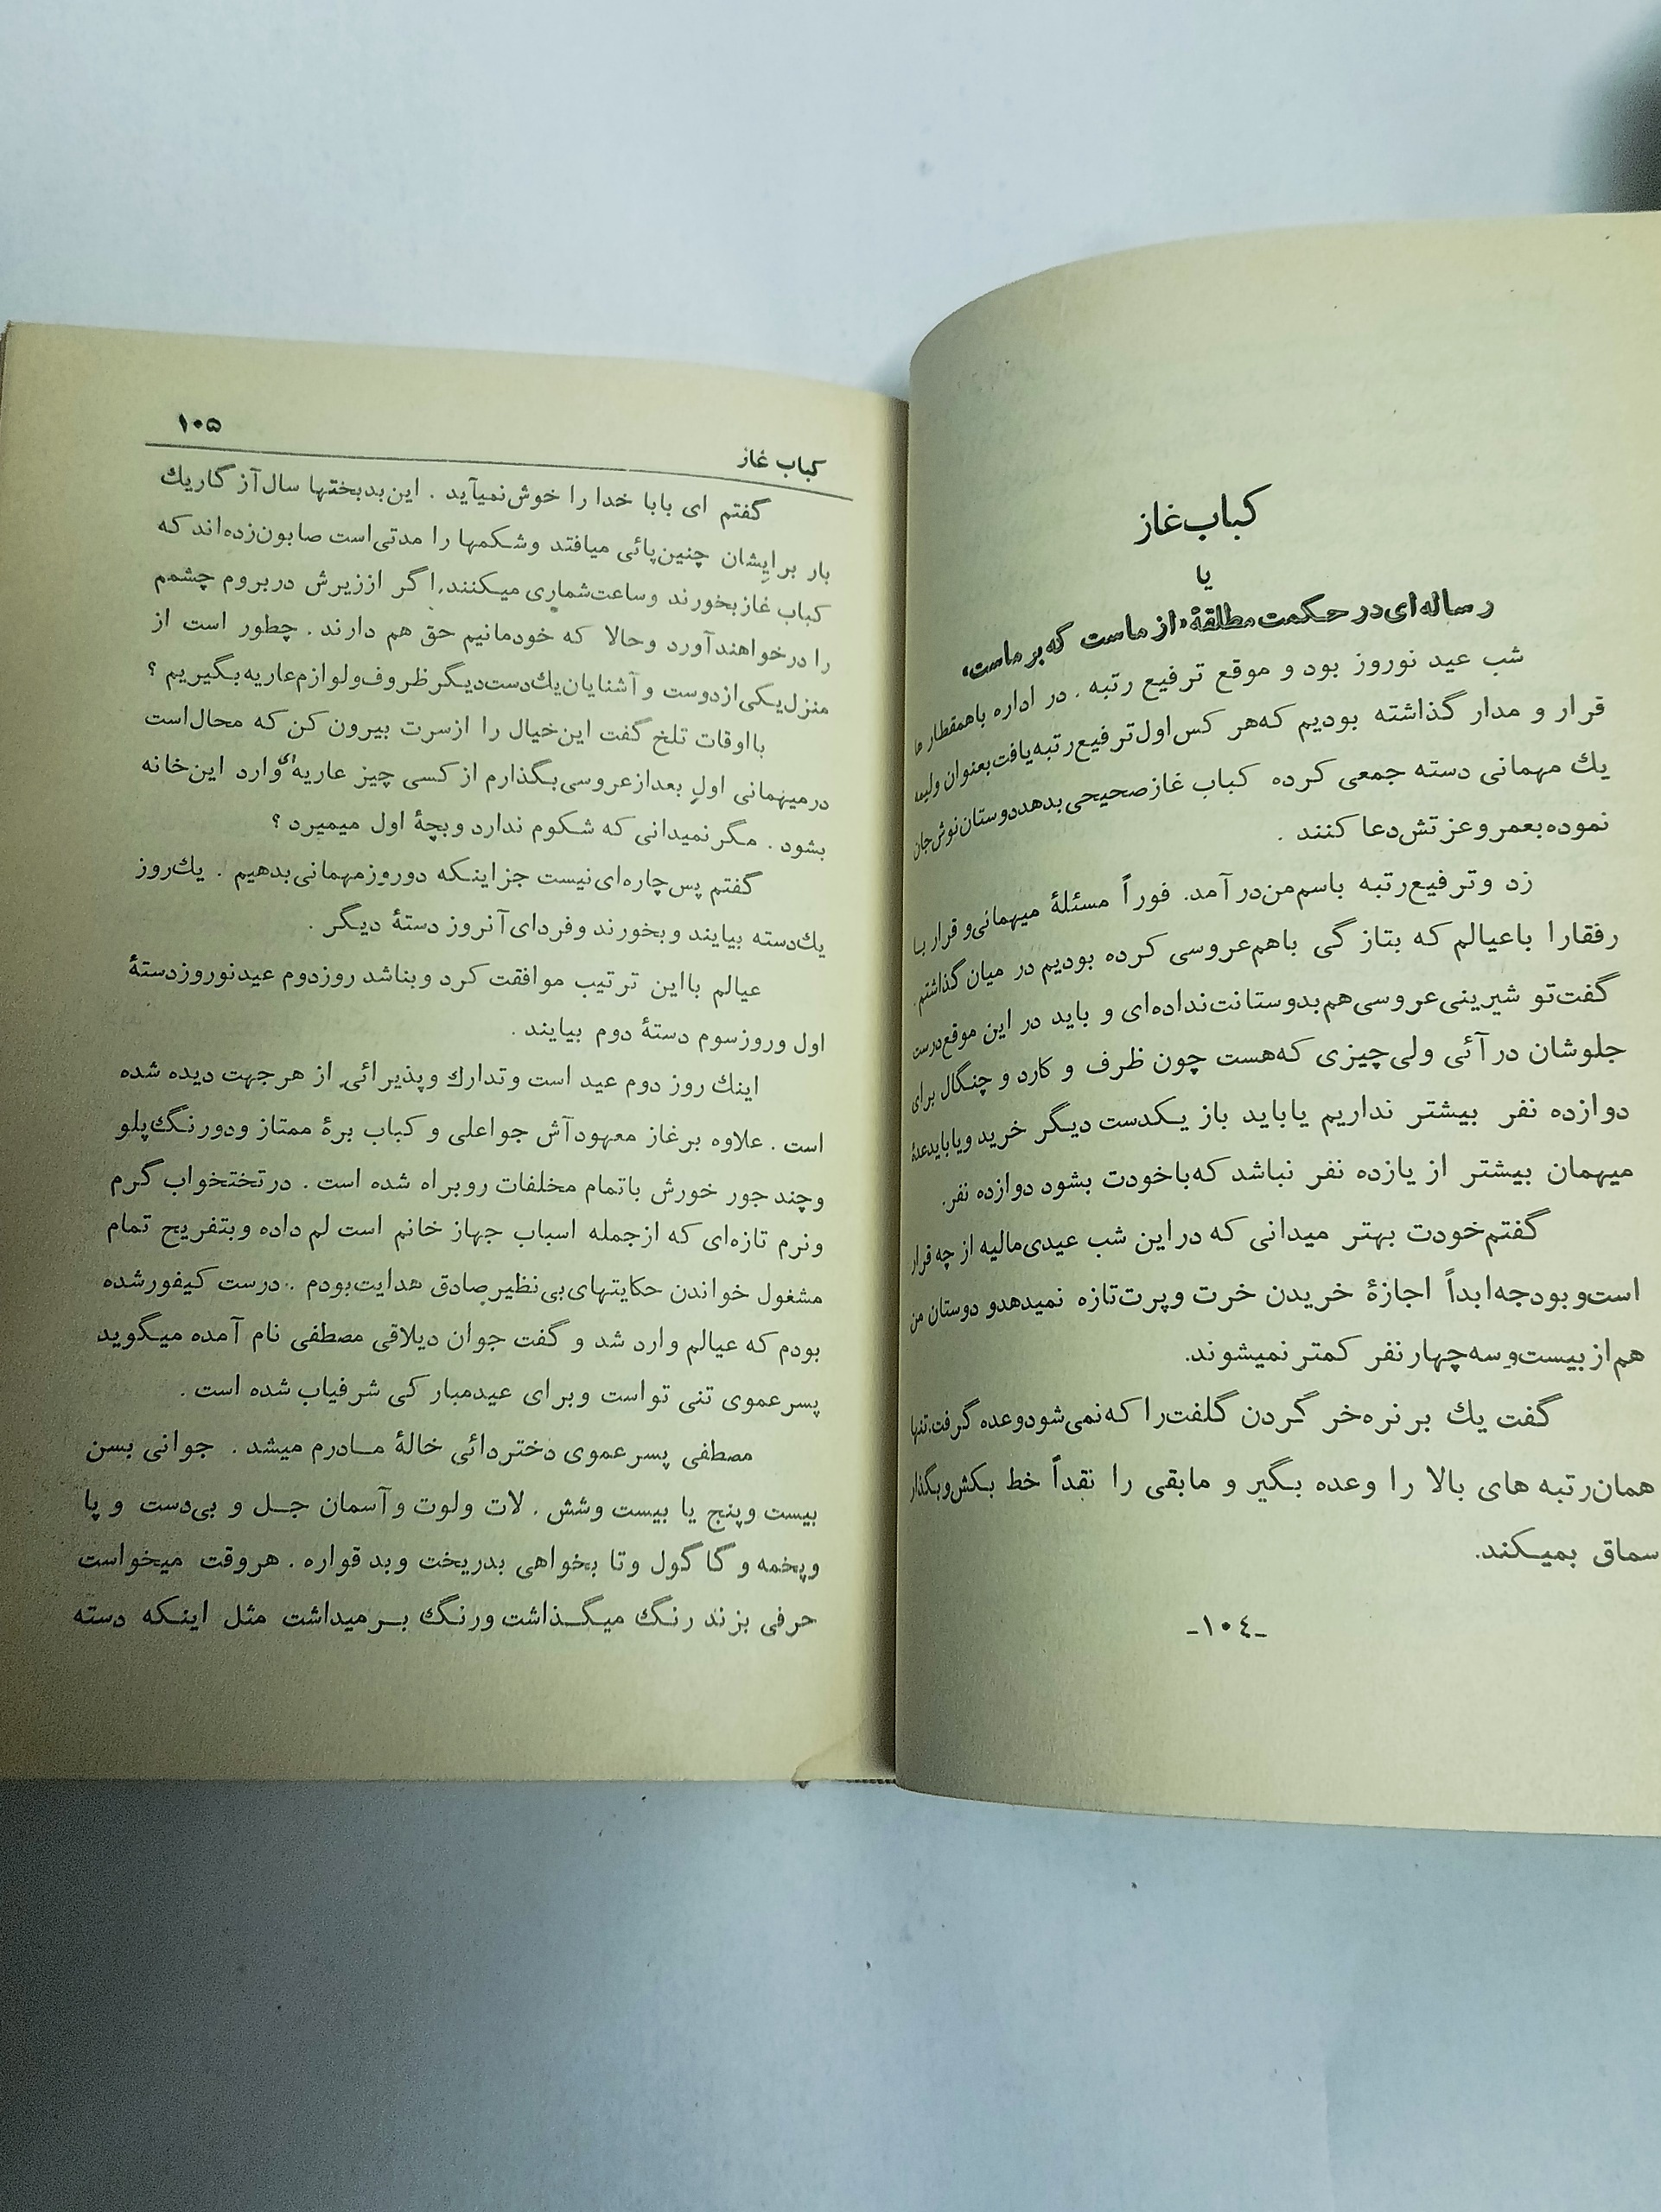 کباب غاز
یا
رساله‌ای در حکمت مطلقهٔ «از ماست که بر ماست»
شب عید نوروز بود و موقع ترفیع رتبه . در اداره باهمقطار ها
قرار و مدار گذاشته بودیم که هر کس اول ترفیع رتبه یافت بعنوان ولیمه
یك مهمانی دسته جمعی کرده کباب غاز صحیحی بدهد دوستان نوش جان
نموده بعمر و عزتش دعا کنند .
زد و ترفیع رتبه باسم من در آمد. فوراً مسئلهٔ میهمانی و قرار با
رفقارا باعیالم که بتازگی باهم عروسی کرده بودیم در میان گذاشتم.
گفت تو شیرینی عروسی هم بدوستانت نداده‌ای و باید در این موقع درست
جلوشان در آئی ولی چیزی که هست چون ظرف و کارد و چنگال برای
دوازده نفر بیشتر نداریم یا باید باز یکدست دیگر خرید و یا باید عدهٔ
میهمان بیشتر از یازده نفر نباشد که باخودت بشود دوازده نفر.
گفتم خودت بهتر میدانی که در این شب عیدی مالیه از چه قرار
است و بودجه ابداً اجازهٔ خریدن خرت و پرت تازه نمیدهد و دوستان من
هم از بیست و سه چهار نفر کمتر نمیشوند.
گفت یك بر نره خر گردن کلفت را که نمی‌شود وعده گرفت، تنها
همان رتبه های بالا را وعده بگیر و مابقی را نقداً خط بکش و بگذار
سماق بمیکند.
-۱۰٤-
۱۰۵
کباب غاز
گفتم ای بابا خدا را خوش نمیآید . این بدبختها سال آزگار یك
بار برایشان چنین پائی میافتد و شکمها را مدتی است صابون زده‌اند که
کباب غاز بخورند و ساعت شماری میکنند. اگر از زیرش در بروم چشمم
را در خواهند آورد و حالا که خودمانیم حق هم دارند . چطور است از
منزل یکی از دوست و آشنایان یك دست دیگر ظروف و لوازم عاریه بگیریم ؟
بااوقات تلخ گفت این خیال را از سرت بیرون کن که محال است
در میهمانی اول بعد از عروسی بگذارم از کسی چیز عاریه‌ای وارد این خانه
بشود . مگر نمیدانی که شکوم ندارد و بچهٔ اول میمیرد ؟
گفتم پس چاره‌ای نیست جز اینکه دو روز مهمانی بدهیم . یك روز
یك دسته بیایند و بخورند و فردای آنروز دستهٔ دیگر .
عیالم بااین ترتیب موافقت کرد و بناشد روز دوم عید نوروز دستهٔ
اول و روز سوم دستهٔ دوم بیایند .
اینك روز دوم عید است و تدارك و پذیرائی از هر جهت دیده شده
است . علاوه بر غاز معهود آش جو اعلی و کباب برهٔ ممتاز و دو رنگ پلو
و چند جور خورش باتمام مخلفات روبراه شده است . در تختخواب گرم
و نرم تازه‌ای که از جمله اسباب جهاز خانم است لم داده و بتفریح تمام
مشغول خواندن حکایتهای بی نظیر صادق هدایت بودم . درست کیفور شده
بودم که عیالم وارد شد و گفت جوان دیلاقی مصطفی نام آمده میگوید
پسر عموی تنی تو است و برای عید مبارکی شرفیاب شده است .
مصطفی پسر عموی دختر دائی خالهٔ مادرم میشد . جوانی بسن
بیست و پنج یا بیست و شش . لات و لوت و آسمان جل و بی دست و پا
و پخمه و گاگول و تا بخواهی بدریخت و بد قواره . هر وقت میخواست
حرفی بزند رنگ میگذاشت و رنگ برمیداشت مثل اینکه دسته